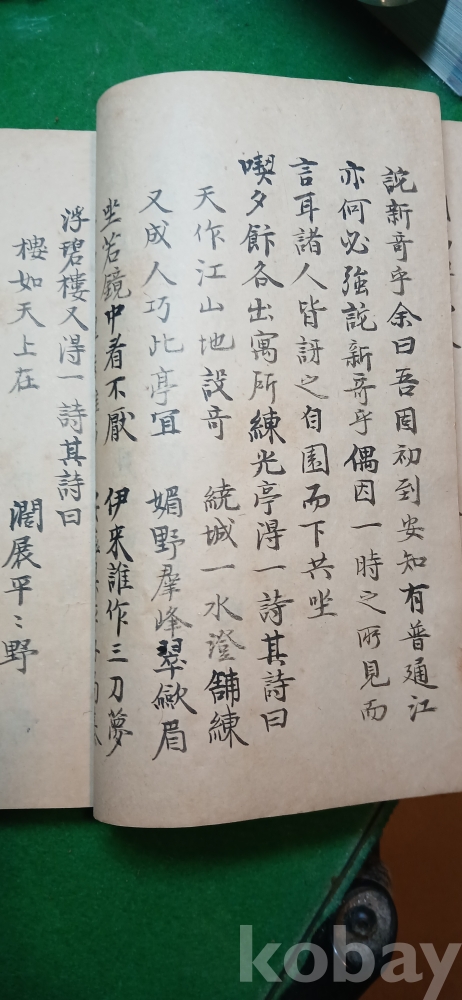 詑新奇乎余曰吾固初到安知有普通江
亦何必強詑新奇乎偶因一時之所見而
言耳諸人皆訝之自園而下共坐
喫夕飰各出寓所練光亭得一詩其詩曰
天作江山地設奇 繞城一水澄鋪練
又成人巧此亭宜 媚野羣峰翠歛眉
坐若鏡中看不厭 伊来誰作三刀夢
浮碧樓又得一詩其詩曰
樓如天上在 濶展平〻野
kobay